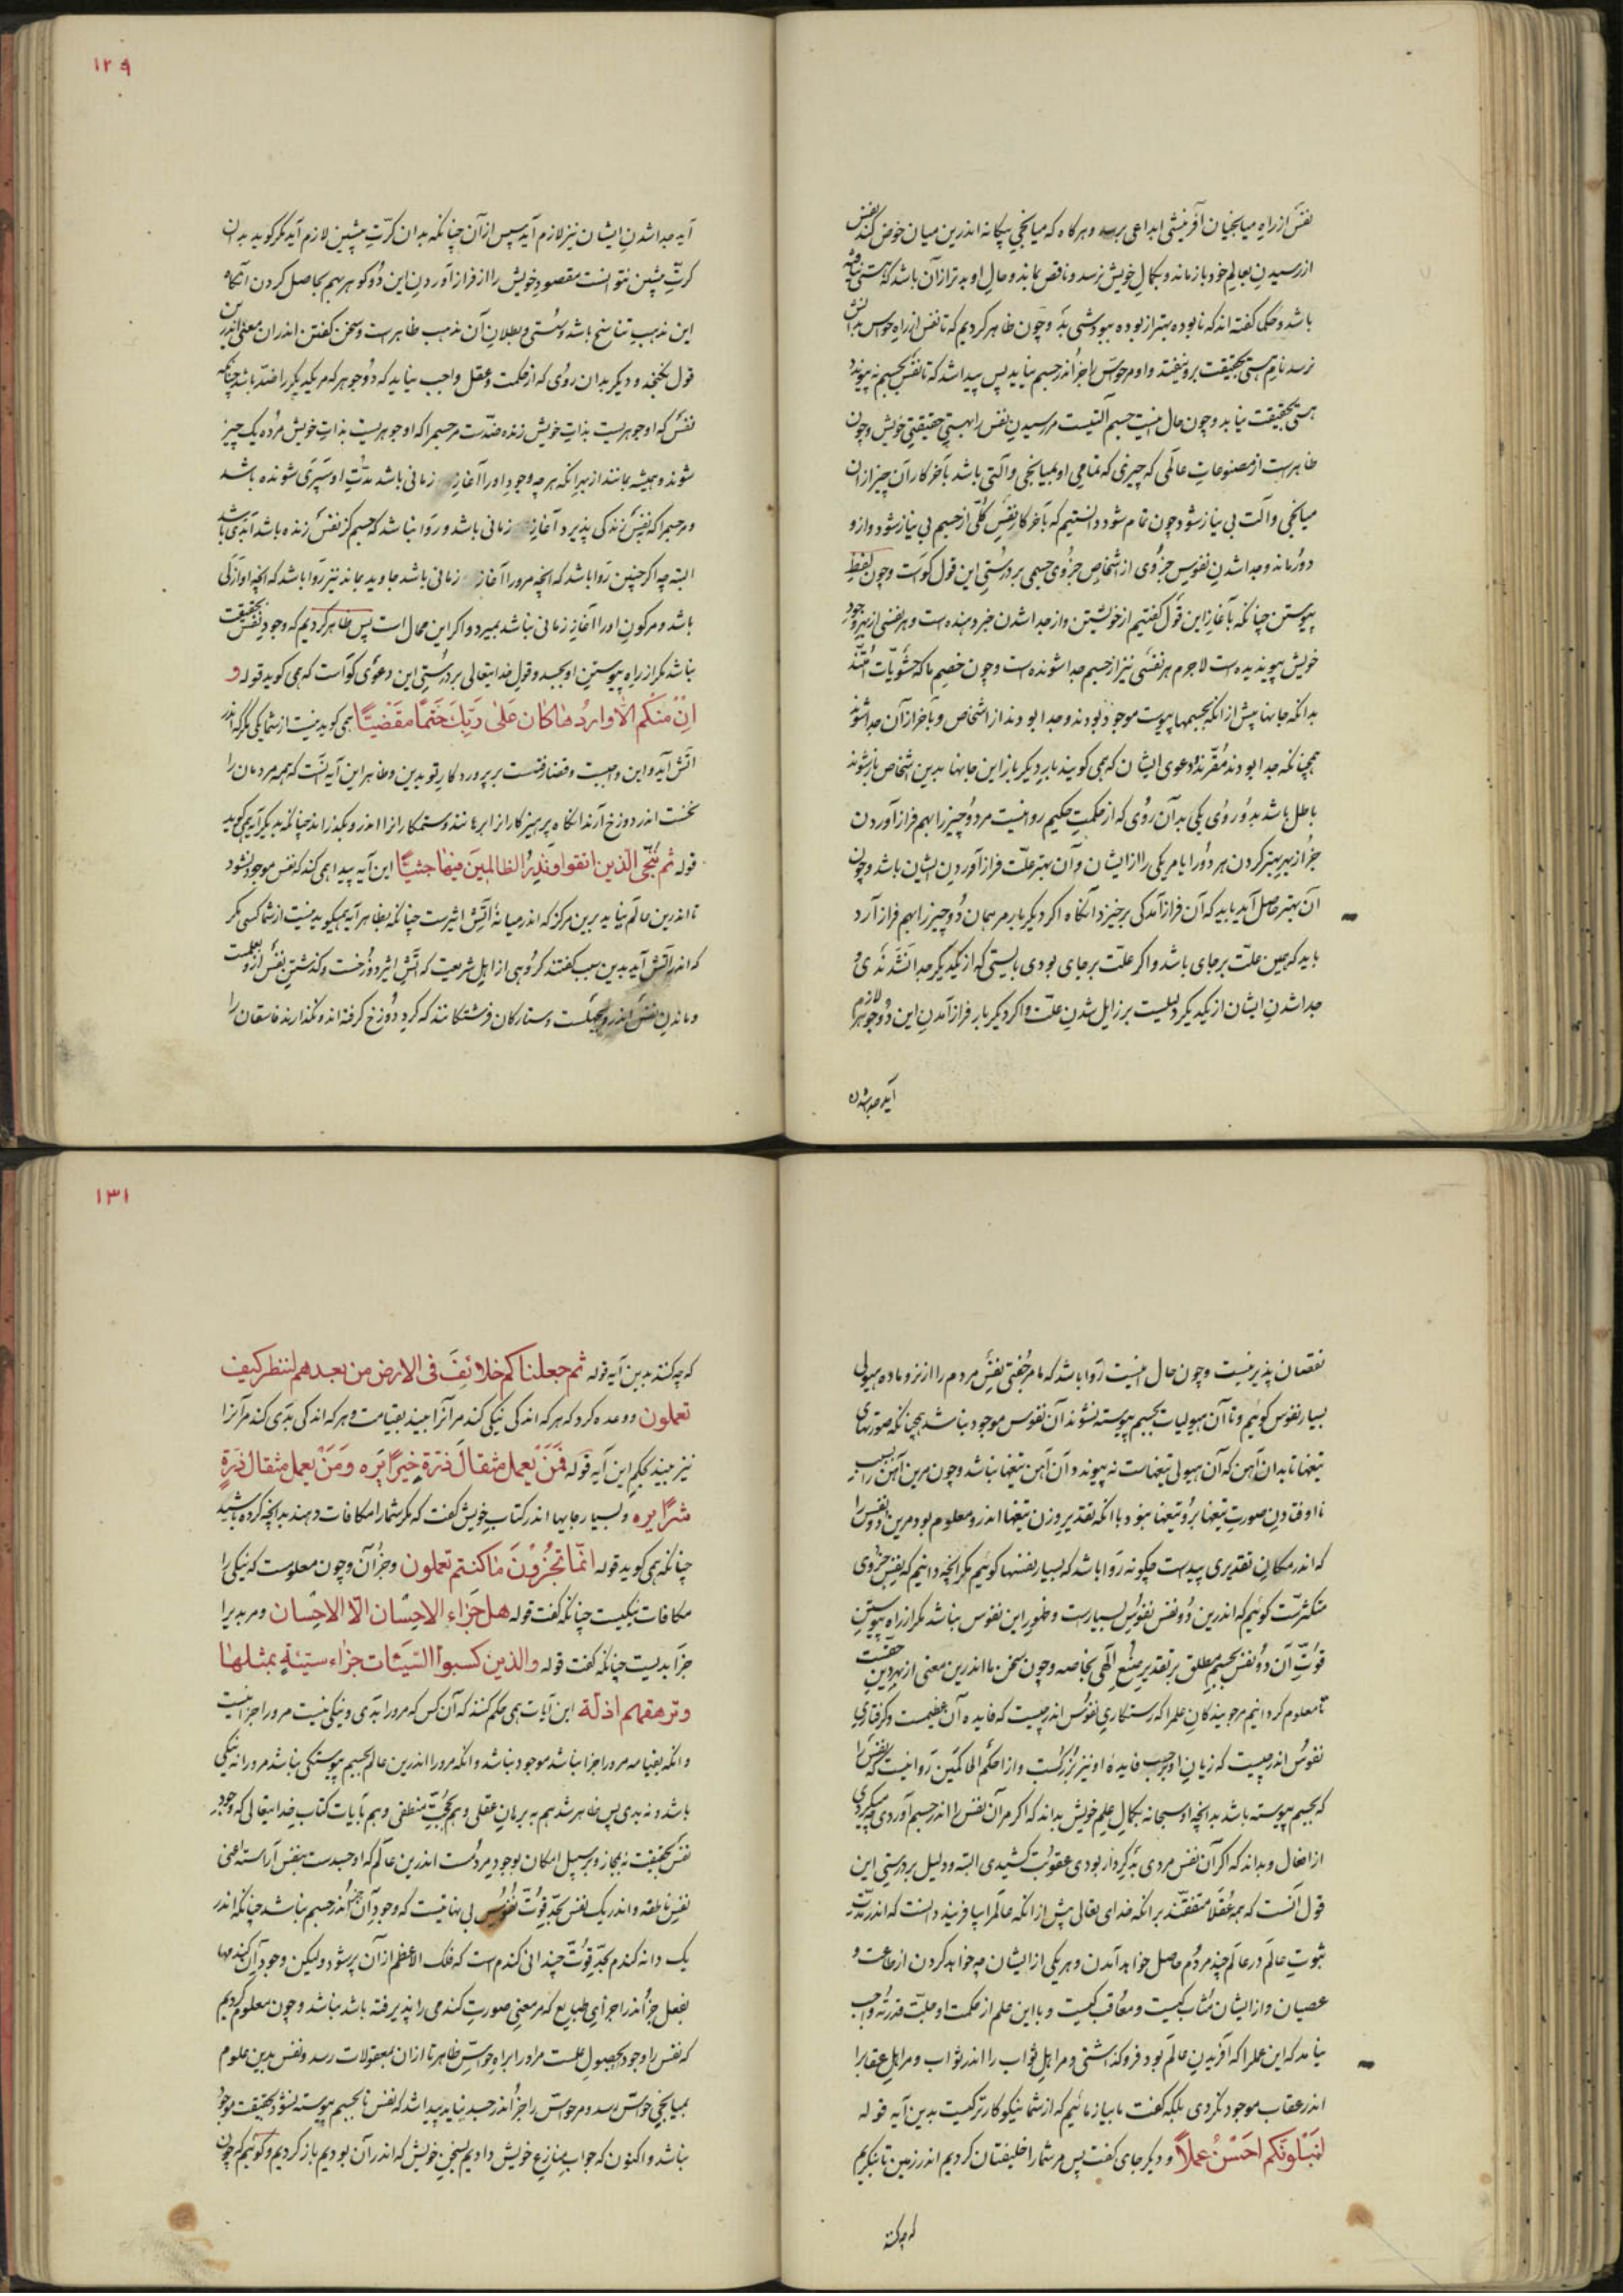 نفس از راه میانجیان آفرینشی ابداعی برسد و هرگاه که میانجی بیگانه اندرین میان خوض کند نفس
از رسیدن بعالم خود باز ماند و بکمال خویش نرسد و ناقص بماند و حال او بدتر از آن باشد که هستی نیافته
باشد و حکما گفته اند که نابوده بهتر از بوده ببودشی بد و چون ظاهر کردیم که تا نفس از راه حواس بدانش
نرسد نام هستی بحقیقت برو نیفتد و او مر حواس را جز اندر جسم نیابد پس پیدا شد که تا نفس بجسم نه پیوندد
هستی بحقیقت نیابد و چون حال اینست جسم آلتیست مر رسیدن نفس را بهستی حقیقتی خویش و چون
ظاهرست از مصنوعات عالمی که چیزی که تمامی او بمیانجی و آلتی باشد بآخر کار آن چیز از آن
میانجی و آلت بی نیاز شود چون تمام شود دانستیم که بآخر کار نفس کلی از جسم بی نیاز شود و ازو
دور ماند و جدا شدن نفوس جزوی از اشخاص جزوی جسمی بر درستی این قول گواست و چون لفظ
پیوستن چنانکه بآغاز این قول گفتیم از خویشتن و از جدا شدن خبر دهنده است و هر نفسی از بهر وجود
خویش پیوندیده است لاجرم هر نفسی نیز از جسم جدا شونده است و چون خصم ما که حشویات امتند
بدانکه جانها پیش از آنکه بجسمها پیوست موجود بودند و جدا بودند از اشخاص و بآخر از آن جدا شوند
همچنانکه جدا بودند مقرند دعوی ایشان که همی گویند بار دیگر باز این جانها بدین اشخاص باز شوند
باطل باشد بدو روی یکی بدان روی که از حکمت حکیم روا نیست مر دو چیز را بهم فراز آوردن
جز از بهر بهتر کردن هر دو را یا مر یکی را از ایشان و آن بهتر علت فراز آوردن ایشان باشد و چون
آن بهتر حاصل آید بباید که آن فراز آمدگی برخیزد آنگاه اگر دیگر بار مر همان دو چیز را بهم فراز آرد
باید که همین علت بر جای باشد و اگر علت بر جای بودی بایستی که از یکدیگر جدا نشدندی و
جدا شدن ایشان از یکدیگر دلیلست بر زایل شدن علت و اگر دیگر بار فراز آمدن این دو جوهر لازم
آید جدا شدن
۱۲۹
آید جدا شدن ایشان نیز لازم آید سپس از آن چنانکه بدان کرت پیشین لازم آید مگر گوید بدان
کرت پیشین نتوانست مقصود خویش را از فراز آوردن این دو گوهر بهم بحاصل کردن آنگاه
این مذهب تناسخ باشد و سستی و بطلان آن مذهب ظاهرست و سخن گفتن اندر آن معنی اندرین
قول نگنجد و دیگر بدان روی که از حکمت و عقل واجب نیاید که دو جوهر که مر یکدیگر را ضد باشد چنانکه
نفس که او جوهریست بذات خویش زنده ضدست مر جسم را که او جوهریست بذات خویش مرده یک چیز
شوند و همیشه بمانند از بهر انکه هر چه وجود او را آغاز زمانی باشد مدت او سپری شونده باشد
و مر جسم را که نفس زندگی پذیرد آغاز زمانی باشد و روا نباشد که جسم کز نفس زنده باشد ابدی باشد
البته چه اگر چنین روا باشد که انچه مرو را آغاز زمانی باشد جاوید بماند نیز روا باشد که انچه او ازلی
باشد و مر کون او را آغاز زمانی نباشد بمیرد و اگر این محال است پس ظاهر کردیم که وجود نفس بحقیقت
نباشد مگر از راه پیوستن او بجسد و قول خدایتعالی بر درستی این دعوی گواست که همی گوید قوله و
ان منکم الا واردها کان علی ربک حتما مقضیا همی گوید نیست از شما یکی مگر که اندر
آتش آید و این واجبست و قضا رفتست بر پروردگار تو بدین و ظاهر این آیه آنست که همه مردمان را
نخست اندر دوزخ آرند آنگاه پرهیزگارانرا برهانند و ستمکارانرا اندرو بگذارند چنانکه بدیگر آیه همی گوید
قوله ثم ننجی الذین اتقوا و نذر الظالمین فیها جثیا این آیه پیدا همی کند که نفس موجود نشود
تا اندرین عالم نیاید برین مرکز که اندر میانه آتش اثیرست چنانکه بظاهر آیه همیگوید نیست از شما کسی مگر
که اندر آتش آید بدین سبب گفتند گروهی از اهل شریعت که آتش اثیر دوزخست و گذشتن نفس ازو بعلمست
و ماندن نفس اندرو بجهلست و ستارگان فرشتگانند که گرد دوزخ گرفته اند و نگذارند فاسقان را
نقصان پذیر نیست و چون حال اینست روا باشد که ما مر جفتی نفس مردم را از نر و ماده هیولی
بسیار نفوس گوئیم و تا آن هیولیات بجسم پیوسته نشوند آن نفوس موجود نباشد همچنانکه صورتهای
تیغها تا بدان آهن که آن هیولی تیغهاست نه پیوند و آن آهن تیغها نباشد و چون مر این آهن را بسبب
نا اوفتادن صورت تیغها برو تیغها نبود با آنکه تقدیر وزن تیغها اندرو معلوم بود مر این دو نفس را
که اندر مکان تقدیری پیداست چگونه روا باشد که بسیار نفسها گوئیم مگر انچه دانیم که نفس جزوی
متکثرست گوئیم که اندرین دو نفس نفوس بسیارست و ظهور این نفوس نباشد مگر از راه پیوستن
قوت آن دو نفس بجسم مطلق بر تقدیر صنع الهی بخاصه و چون سخن ما اندرین معنی از بهر دین حقست
تا معلوم گردانیم مر جویندگان علم را که رستگاری نفوس اندر چیست که فایده آن عظیمست و گرفتاری
نفوس اندر چیست که زیان او برحسب فایده او نیز بزرگست و از احکم الحاکمین روا نیست که نفس را
که بجسم پیوسته باشد بدانچه او سبحانه بکمال علم خویش بداند که اگر مر آن نفس را اندر جسم آوردی چه میکردی
از افعال و بداند که اگر آن نفس مردی بد کردار بودی عقوبت کشیدی البته و دلیل بر درستی این
قول آنست که همه عقلا متفقند بر انکه خدای تعالی پیش از انکه عالم را بیافریند دانست که اندر مدت
ثبوت عالم در عالم چند مردم حاصل خواهد آمدن و هر یکی از ایشان چه خواهد کردن از طاعت و
عصیان و از ایشان مثاب کیست و معاقب کیست و با این علم از حکمت او جلت قدرته واجب
نیامد که این عمل را که آفریدن عالم بود فرو گذاشتی و مر اهل ثواب را اندر ثواب و مر اهل عقاب را
اندر عقاب موجود نکردی بلکه گفت ما بیازمائیم که از شما نیکوکارتر کیست بدین آیه قوله
لنبلونکم احسن عملا و دیگر جای گفت پس مر شما را خلیفتان کردیم اندر زمین تا بنگریم
که چه کنند
۱۳۱
که چه کنند بدین آیه قوله ثم جعلناکم خلائف فی الارض من بعدهم لننظر کیف
تعملون و وعده کرد که هر که اندکی نیکی کند مر آنرا بیند بقیامت و هر که اندکی بدی کند مر آنرا
نیز بیند بحکم این آیه قوله فمن یعمل مثقال ذرة خیرا یره و من یعمل مثقال ذرة
شرا یره و بسیار جایها اندر کتاب خویش گفت که مر شما را مکافات دهند بدانچه کرده باشید
چنانکه همی گوید قوله انما تجزون ما کنتم تعملون و جز آن و چون معلومست که نیکی را
مکافات نیکیست چنانکه گفت قوله هل جزاء الاحسان الا الاحسان و مر بدی را
جزا بدیست چنانکه گفت قوله والذین کسبوا السیئات جزاء سیئة بمثلها
و ترهقهم ذلة این آیات همی حکم کنند که آن کس که مرو را بدی و نیکی نیست مرو را جزا نیست
و انکه بقیامه مرو را جزا نباشد موجود نباشد و انکه مرو را اندرین عالم بجسم پیوستگی نباشد مرو را نه نیکی
باشد و نه بدی پس ظاهر شد هم به برهان عقلی و هم بحجت منطقی و هم بآیات کتاب خدایتعالی که وجود
نفس بحقیقت نه بمجاز و بر سبیل امکان بوجود مردمست اندرین عالم که او جسدست بنفس آراسته اعنی
نفس ناطقه و اندر یک نفس بحد قوت نفوس بی نهایتست که وجود آن جز اندر جسم نباشد چنانکه اندر
یک دانه گندم بحد قوت چندانی گندم است که فلک الاعظم از آن پر شود ولیکن وجود آن گندمها
بفعل جز اندر اجزای طبایع که مر معنی صورت گندمی را پذیرفته باشد نباشد و چون معلوم کردیم
که نفس را وجود بحصول علمست مراورا براه حواس ظاهر تا از ان بمعقولات رسد و نفس بدین علوم
بمیانجی حواس رسد و مر حواس را جز اندر جسد نیابد پیدا شد که نفس تا بجسم پیوسته نشود بحقیقت موجود
نباشد و اکنون که جواب منازع خویش دادیم بسخن خویش که اندر آن بودیم باز گردیم و گوئیم که چون